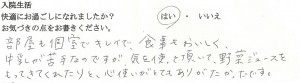 入院生活
快適にお過ごしになれましたか? はい ・ いいえ
お気づきの点をお書きください。
部屋も個室でキレイで、食事もおいしく、
牛乳が苦手なのですが 気を使って頂いて、野菜ジュースを
とってきてくれたりと、心使いがとてもありがたかったです。